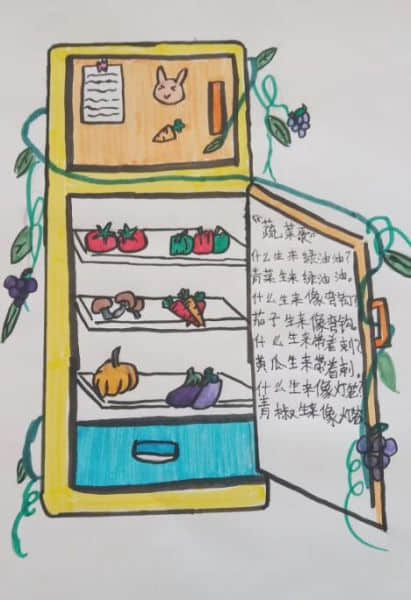 《蔬菜歌》
什么生来绿油油?
青菜生来绿油油。
什么生来像弯钩?
茄子生来像弯钩。
什么生来带着刺?
黄瓜生来带着刺。
什么生来像灯笼?
青椒生来像灯笼